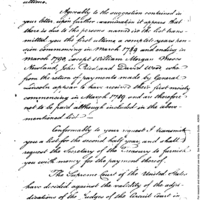 ultimo.
Agreeably to the suggestion contained in
your letter upon further examination it appears that
there is due to the persons named in the list trans-
mitted you the first ultimo a complete years pen-
sion commencing in March 1789 and ending in
march 1790 except William Morgan Prince
Newland, John Cleat and David Weed who
from the nature of payments made by General
Lincoln appear to have received their first moiety
commencing in March 1789 and are therefore
not to be paid although included in the above
mentioned list
Conformably to your request I transmit
you a list for the second half year, and shall
request the Secretary of the Treasury to furnish
you with money for the payment thereof.
The Supreme Court of the United States
have decided against the validity of the adju-
dications of the Judges of the Circuit Court in